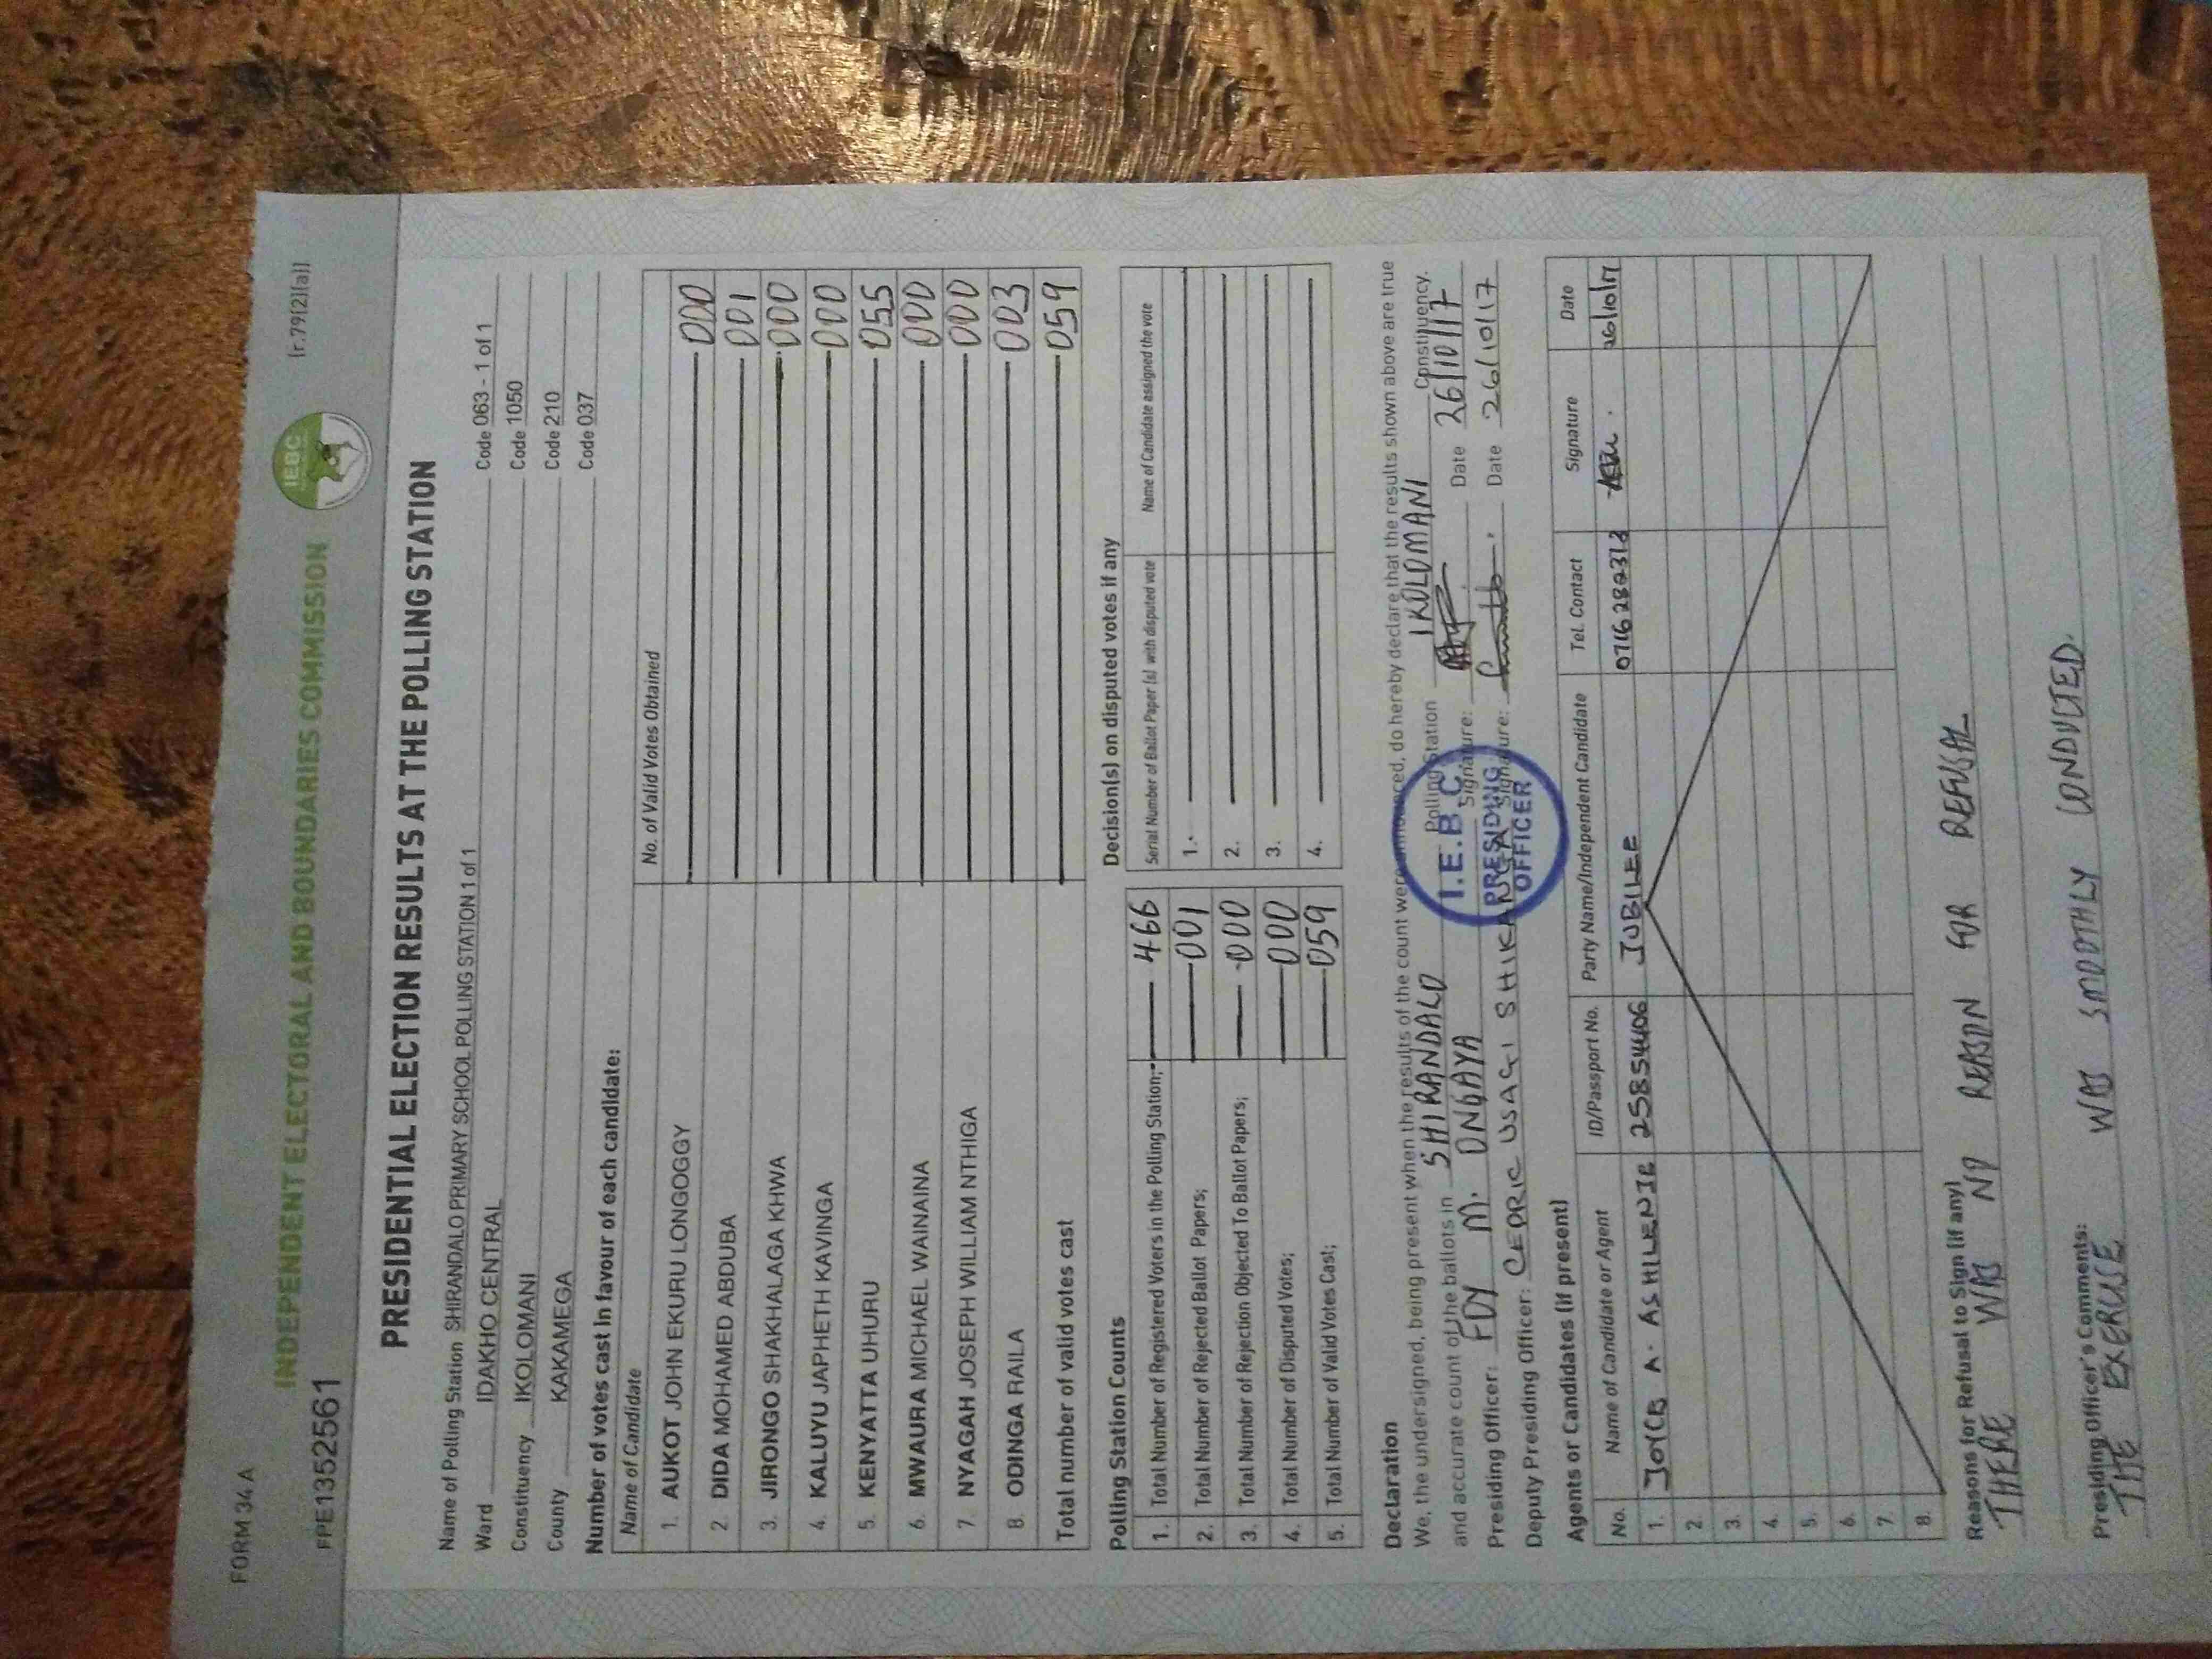 FORM 34 A
[r.79(2)(a)]
INDEPENDENT ELECTORAL AND BOUNDARIES COMMISSION
IEBC
FPE1352561
PRESIDENTIAL ELECTION RESULTS AT THE POLLING STATION
Name of Polling Station SHIRANDALO PRIMARY SCHOOL POLLING STATION 1 of 1 Code 063 - 1 of 1
Ward IDAKHO CENTRAL Code 1050
Constituency IKOLOMANI Code 210
County KAKAMEGA Code 037
Number of votes cast in favour of each candidate:
Name of Candidate No. of Valid Votes Obtained
1. AUKOT JOHN EKURU LONGOGGY 000
2. DIDA MOHAMED ABDUBA 001
3. JIRONGO SHAKHALAGA KHWA 000
4. KALUYU JAPHETH KAVINGA 000
5. KENYATTA UHURU 055
6. MWAURA MICHAEL WAINAINA 000
7. NYAGAH JOSEPH WILLIAM NTHIGA 000
8. ODINGA RAILA 003
Total number of valid votes cast 059
Polling Station Counts
1. Total Number of Registered Voters in the Polling Station; 466
2. Total Number of Rejected Ballot Papers; 001
3. Total Number of Rejection Objected To Ballot Papers; 000
4. Total Number of Disputed Votes; 000
5. Total Number of Valid Votes Cast; 059
Decision(s) on disputed votes if any
Serial Number of Ballot Paper (s) with disputed vote Name of Candidate assigned the vote
1.
2.
3.
4.
Declaration
We, the undersigned, being present when the results of the count were announced, do hereby declare that the results shown above are true
and accurate count of the ballots in SHIRANDALO Polling Station IKOLOMANI Constituency.
Presiding Officer: FDY M. ONGAYA Signature: Date 26/10/17
Deputy Presiding Officer: CEDRIC USAGI SHIKANGA Signature: Date 26/10/17
I.E.B.C
PRESIDING
OFFICER
Agents or Candidates (if present)
No. Name of Candidate or Agent ID/Passport No. Party Name/Independent Candidate Tel. Contact Signature Date
1. JOYCE A. ASHILENJE 25854406 JUBILEE 26/10/17
2.
3.
4.
5.
6.
7.
8.
Reasons for Refusal to Sign (if any)
THERE WAS NO REASON FOR REFUSAL
Presiding Officer's Comments:
THE EXERCISE WAS SMOOTHLY CONDUCTED.